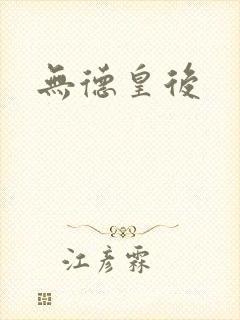 無德皇後
江彦霖